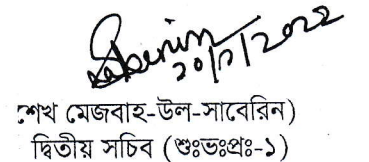 Sabenin
20/7/2022
শেখ মেজবাহ-উল-সাবেরিন)
দ্বিতীয় সচিব (শুঃভঃপ্রঃ-১)